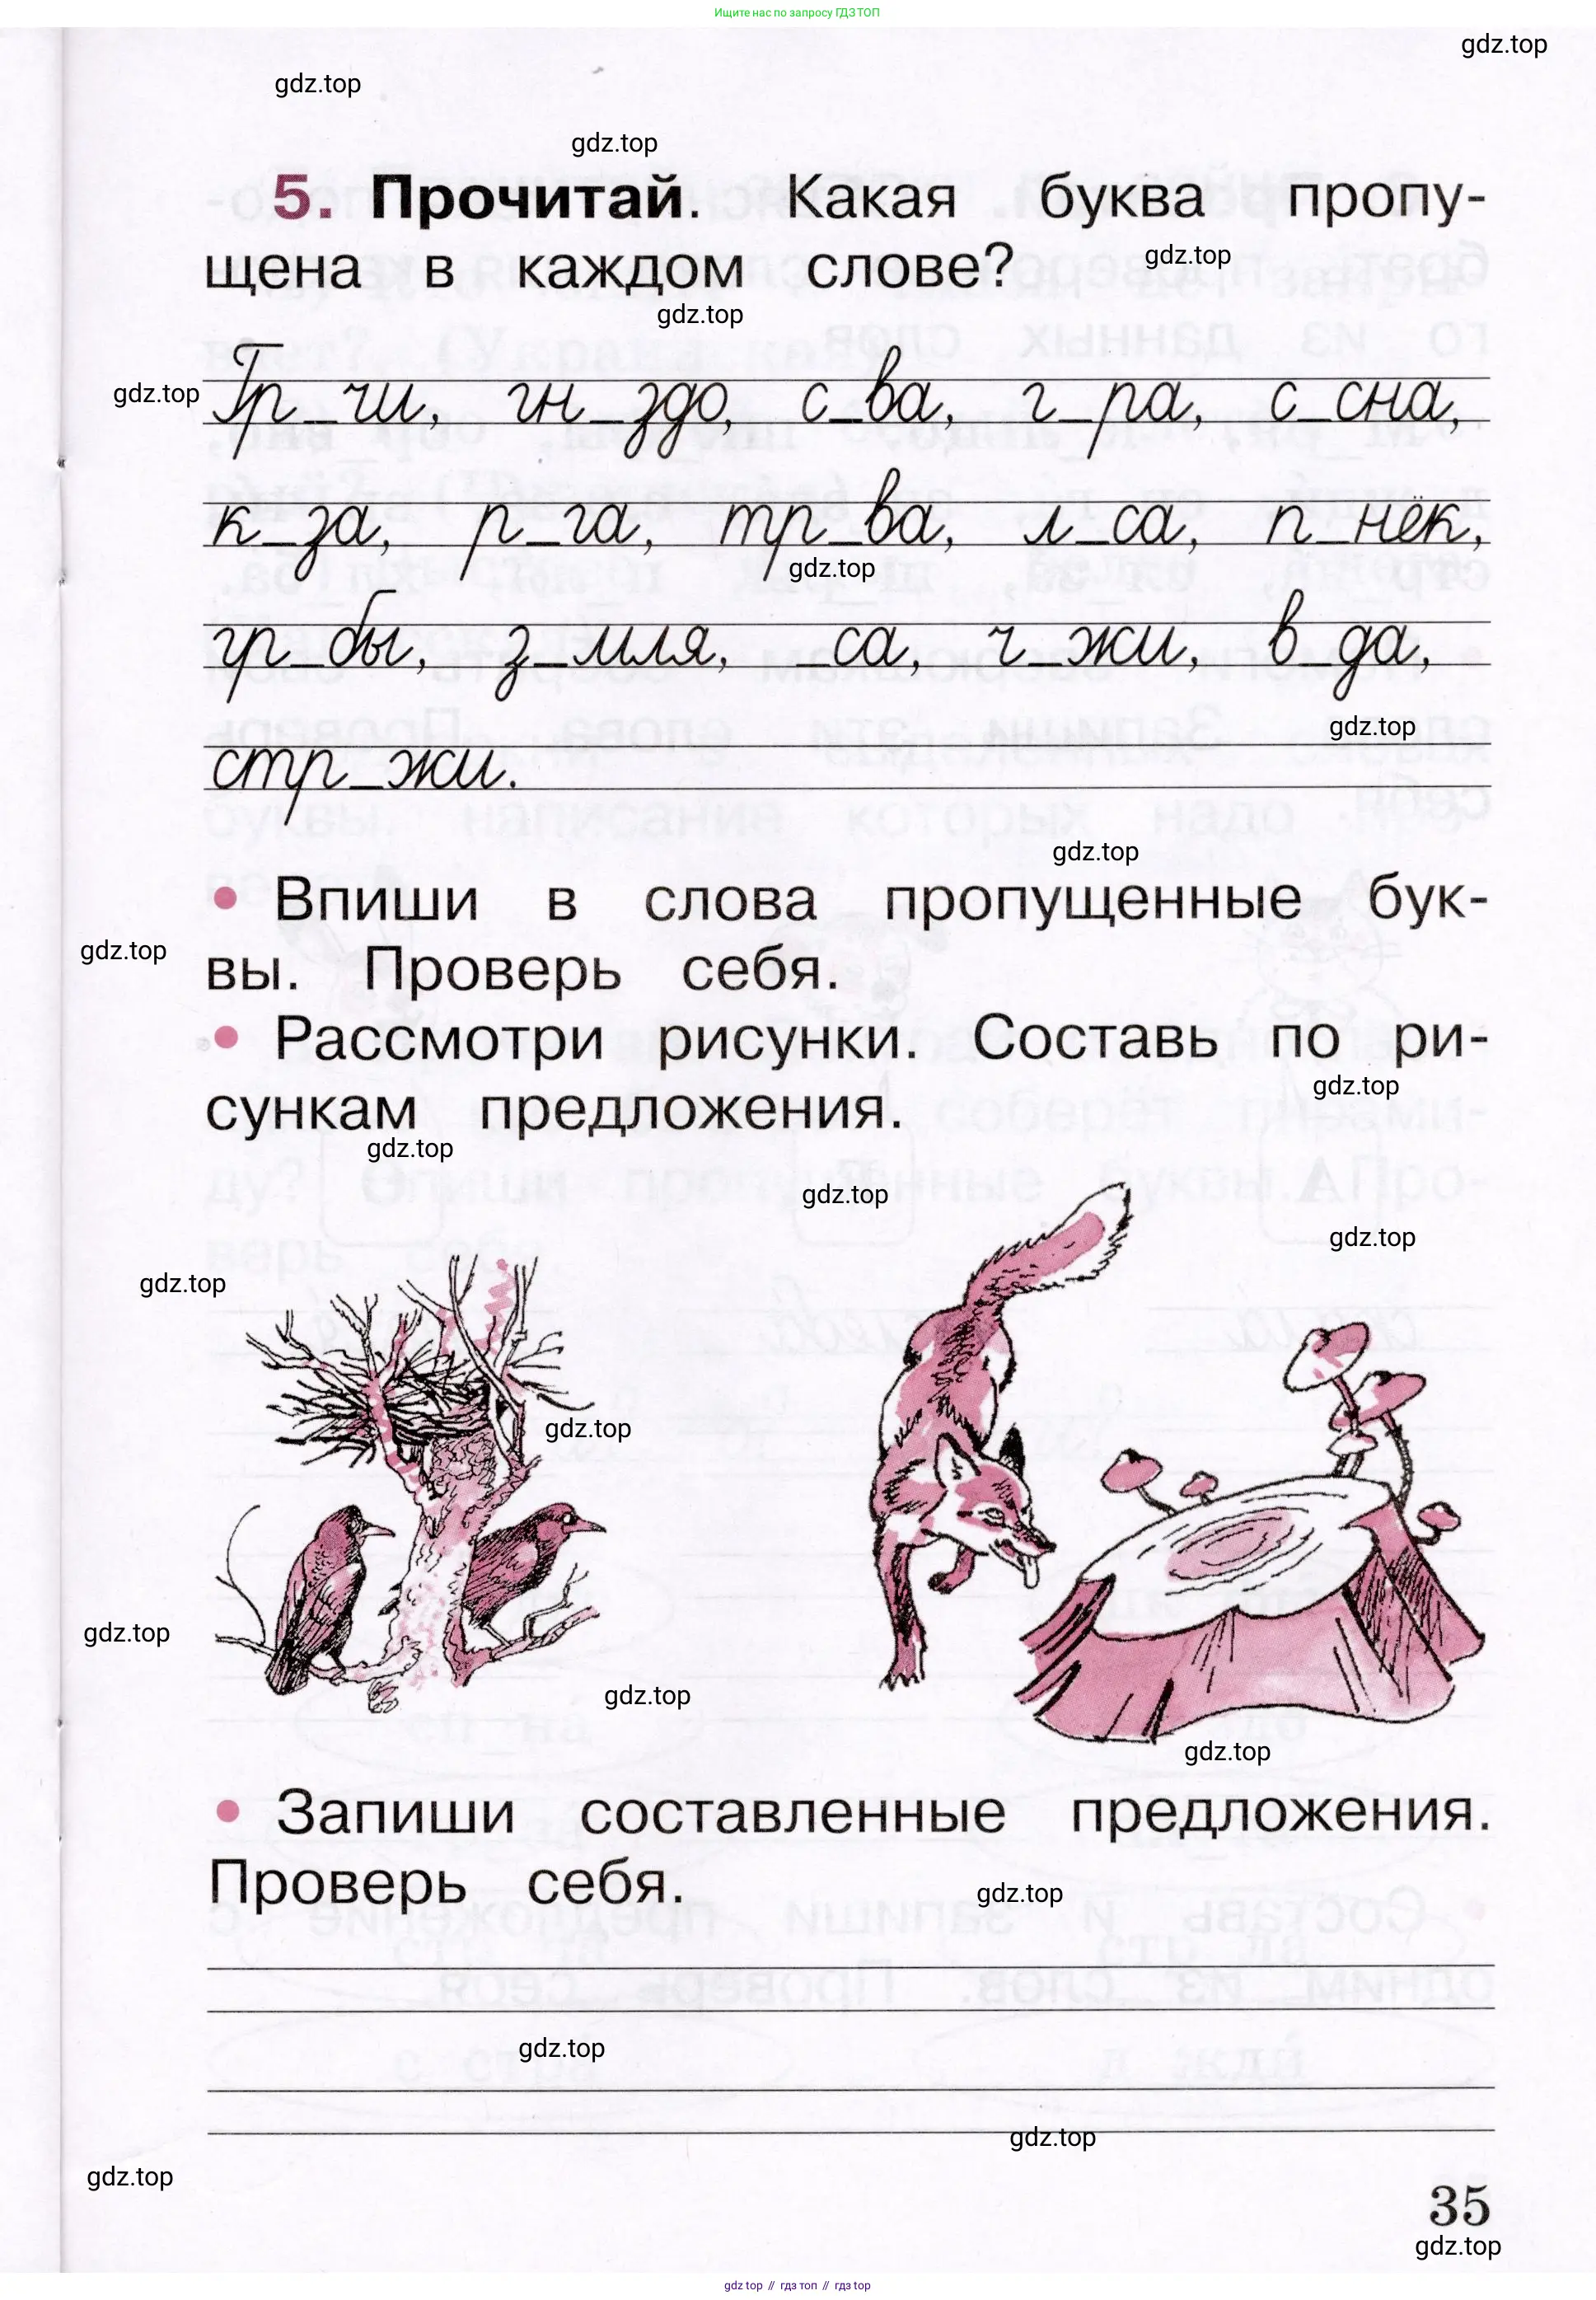 Ищите нас по запросу ГДЗ ТОП
gdz.top
gdz.top
gdz.top
5. Прочитай. Какая буква пропу-
щена в каждом слове?
gdz.top
gdz.top
gdz.top
Гр_чи, гн_здо, с_ва, г_ра, с_сна,
к_за, р_га, тр_ва, л_са, п_нёк,
gdz.top
гр_бы, з_мля, _са, ч_жи, в_да,
gdz.top
стр_жи.
gdz.top
• Впиши в слова пропущенные бук-
gdz.top
вы. Проверь себя.
• Рассмотри рисунки. Составь по ри-
gdz.top
сункам предложения.
gdz.top
gdz.top
gdz.top
gdz.top
gdz.top
gdz.top
gdz.top
gdz.top
• Запиши составленные предложения.
Проверь себя.
gdz.top
gdz.top
gdz.top
gdz.top
35
gdz.top
gdz top // гдз топ // гдз top